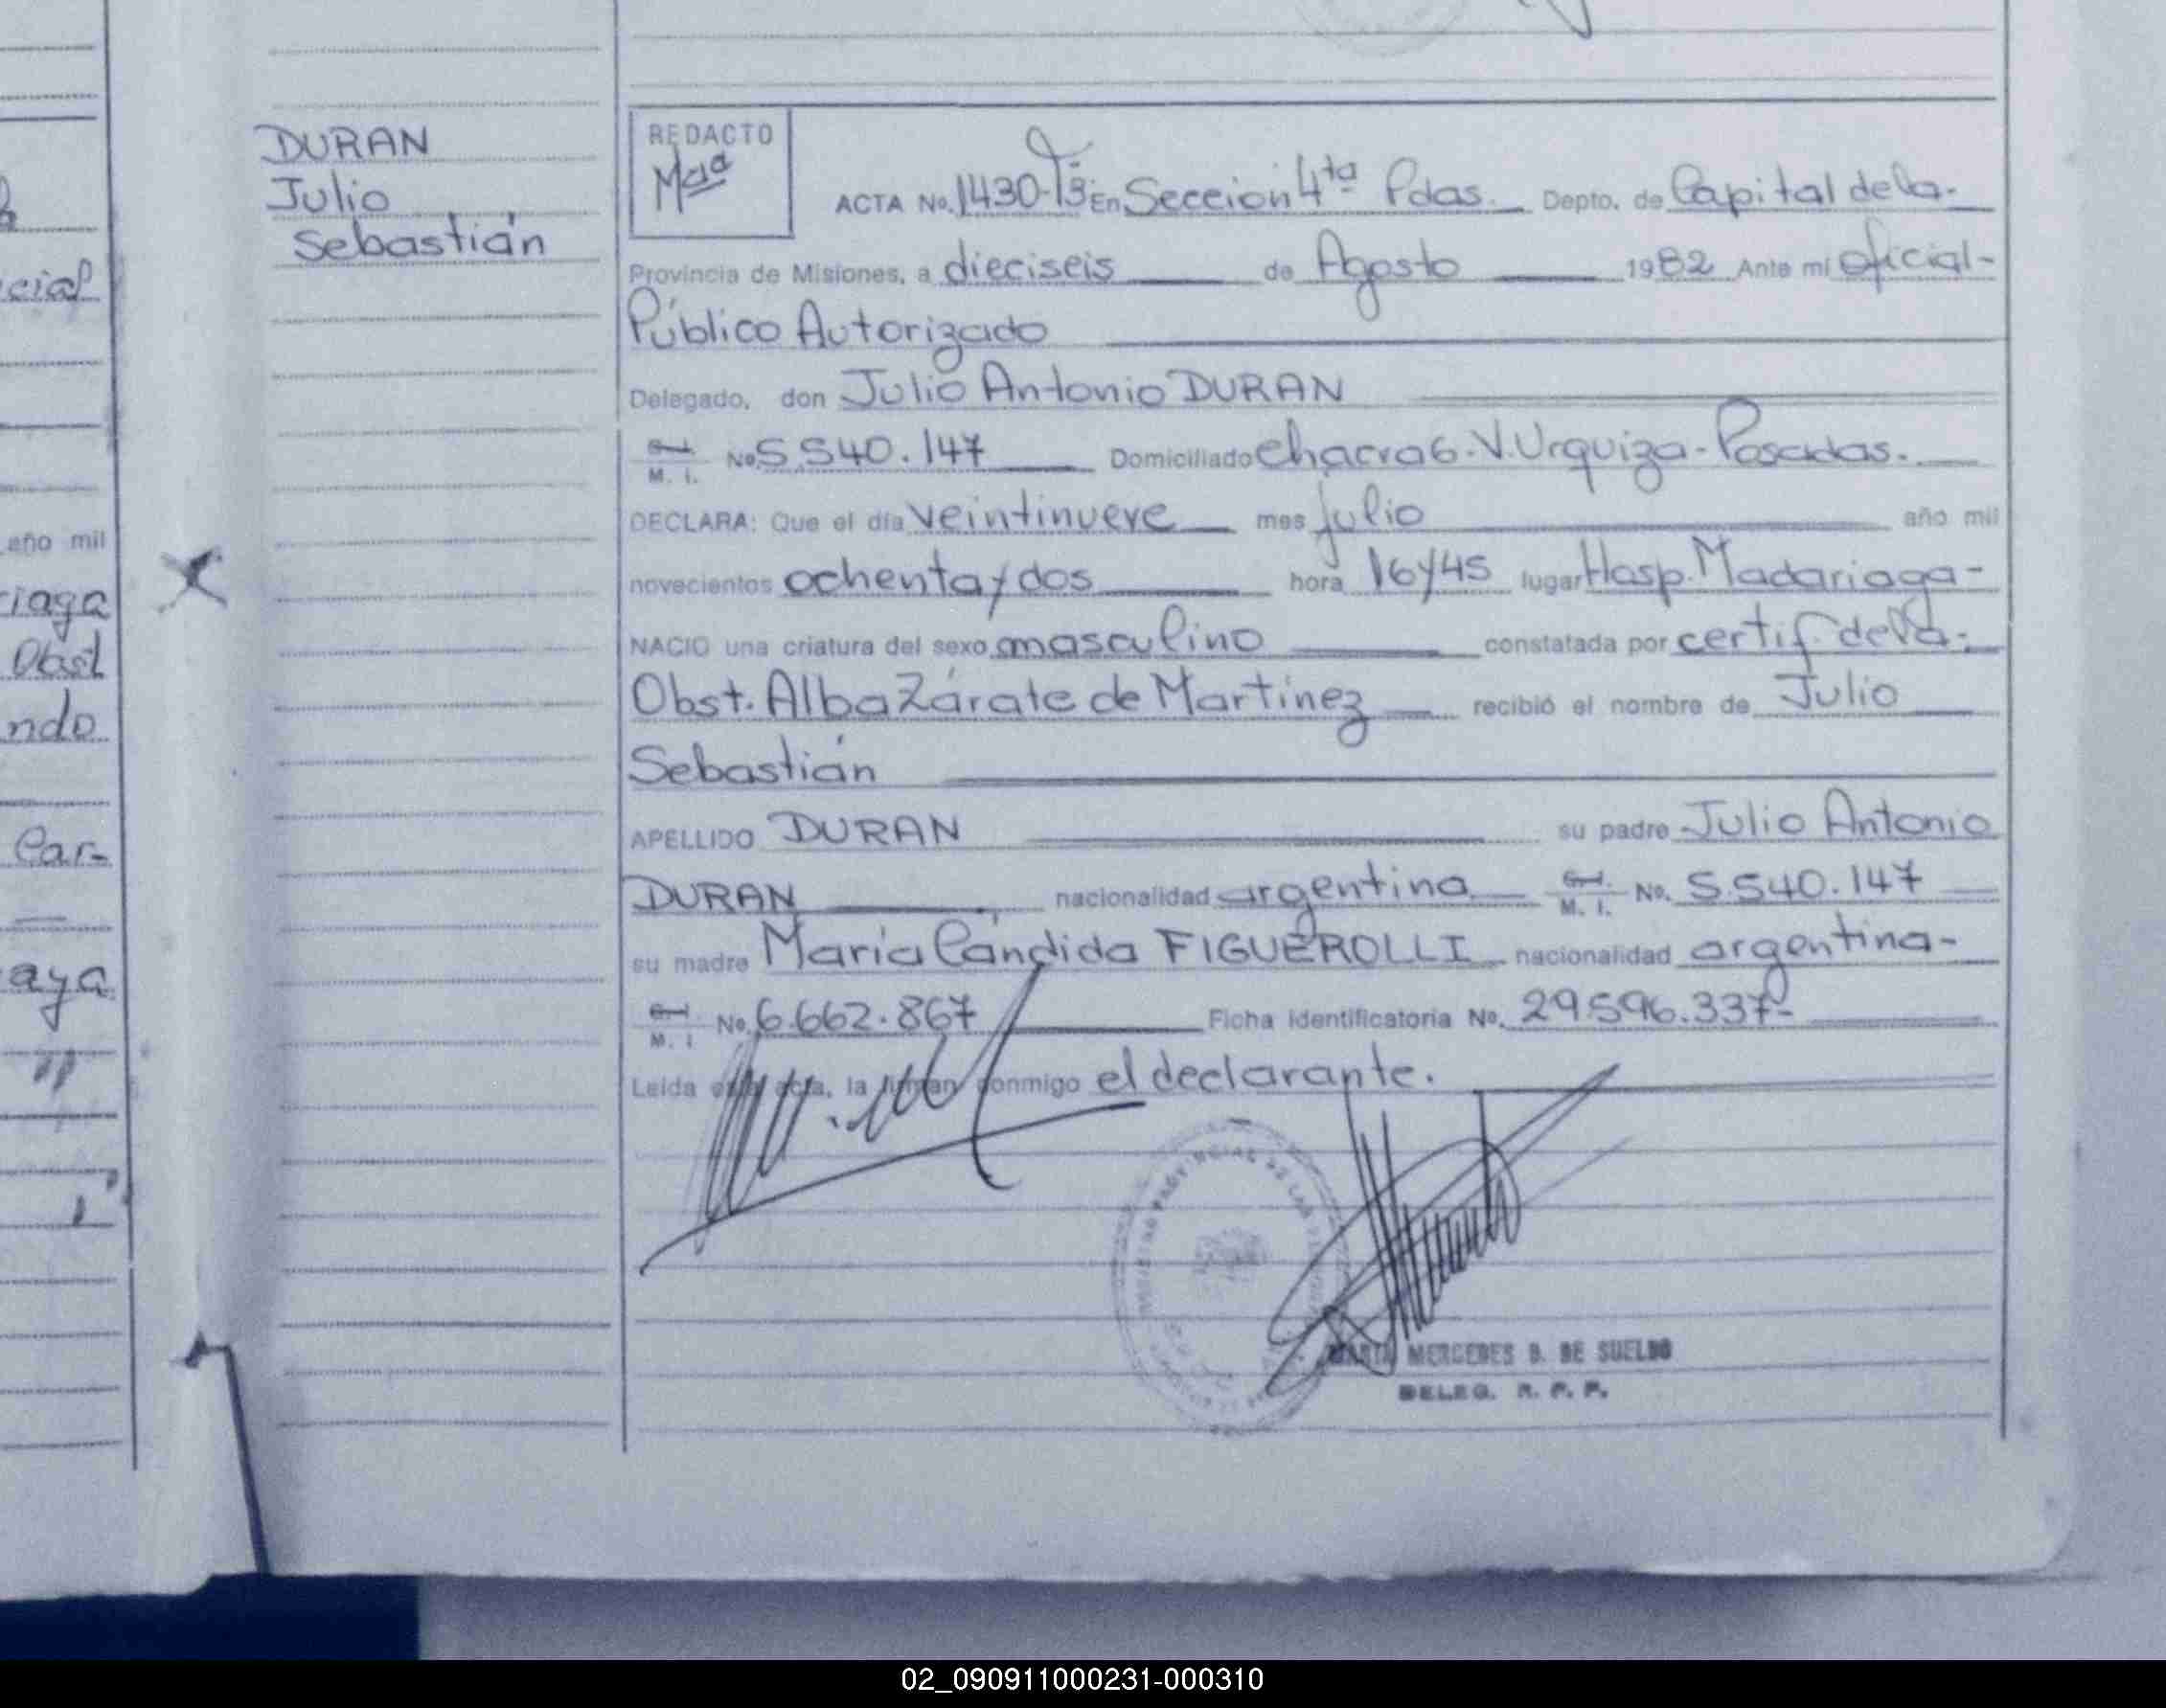 DURAN
Julio
Sebastián
cial
año mil
riaga
Obst
ndo
Car-
aya
REDACTO
ACTA No. 1430-T3: En Seccion 4ta Pdas. Depto. de Capital de la-
Provincia de Misiones, a dieciseis de Agosto 1982 Ante mí oficial-
Público Autorizado
Delegado, don Julio Antonio DURAN
M. I. No. 5.540.147 Domiciliado Chacra 6. V. Urquiza - Posadas.
DECLARA: Que el día veintinueve mes julio año mil
novecientos ochenta y dos hora 16y45 lugar Hosp. Madariaga-
NACIO una criatura del sexo masculino constatada por certif. de la-
Obst. Alba Zárate de Martínez recibió el nombre de Julio
Sebastián
APELLIDO DURAN su padre Julio Antonio
DURAN nacionalidad argentina M. I. No. 5.540.147
su madre María Cándida FIGUEROLLI nacionalidad argentina-
M. I No. 6.662.867 Ficha identificatoria No. 29.596.337-
Leída esta acta, la firman conmigo el declarante.
MERCEDES B. DE SUELDO
DELEG. R. P. P.
02_090911000231-000310